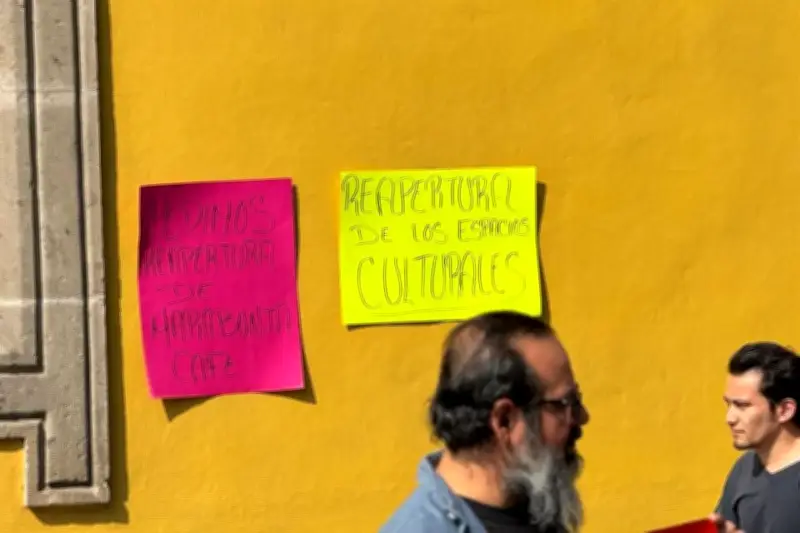 PEDIMOS
REAPERTURA
DE
CAFE
REAPERTURA
DE LOS ESPACIOS
CULTURALES